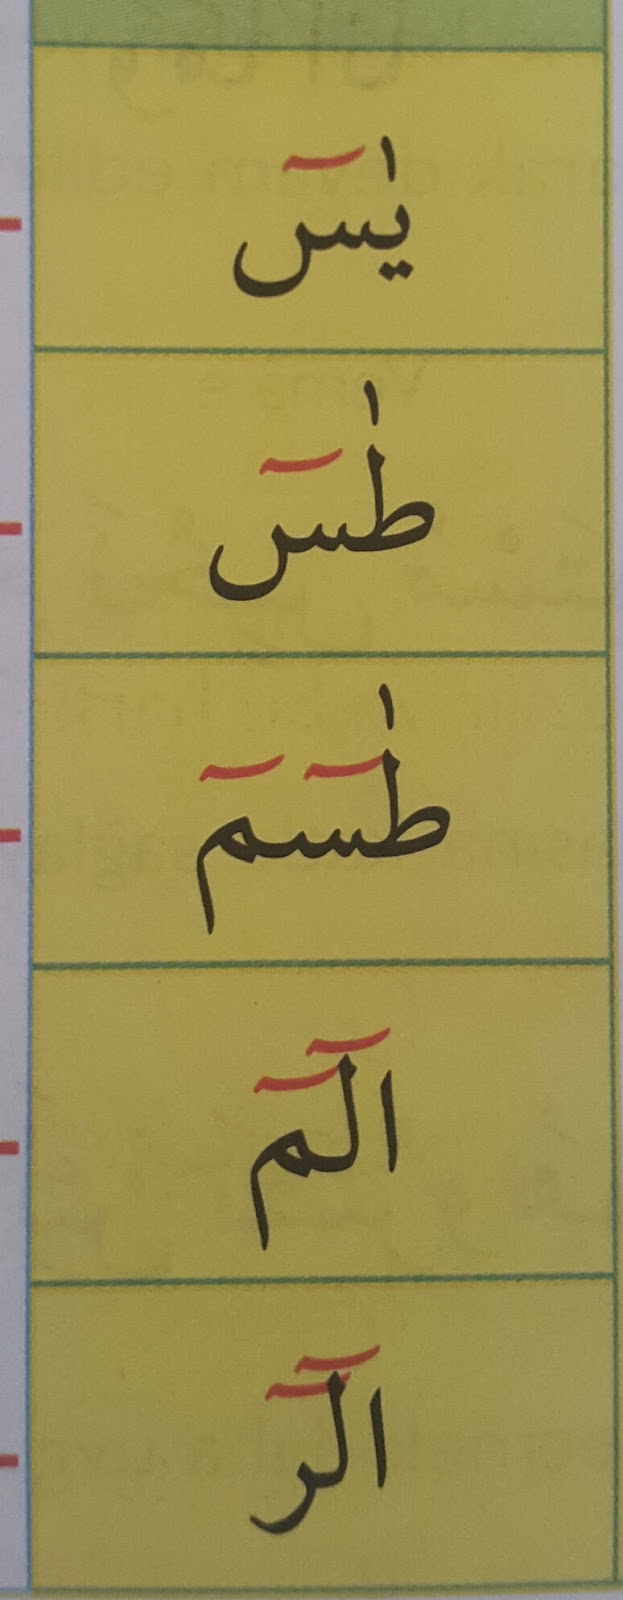 يٰسٓ
طٰسٓ
طٰسٓمٓ
الٓمٓ
الٓرٓ